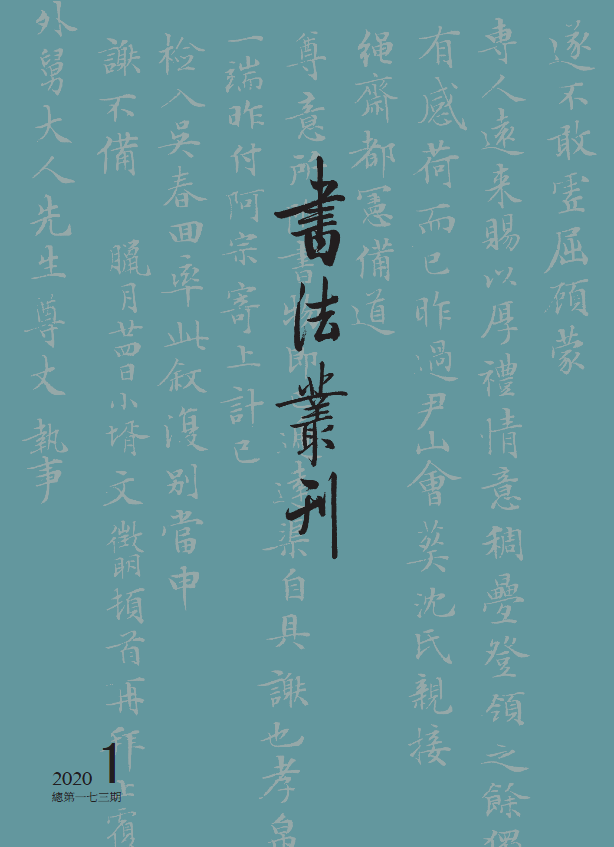 書法叢刊
遂不敢虛屈顧蒙
專人遠來賜以厚禮情意稠疊登領之餘
有感荷而已昨過尹山會葬沈氏親接
繩齋都憲備道
尊意所書物即達渠自具謝也孝帛
一瑞昨付阿宗寄上計已
檢入吳春回率此叙復別當申
謝不備 臘月廿四日小壻文徵明頓首再拜上
外舅大人先生尊丈 執事
2020 1
總第一七三期